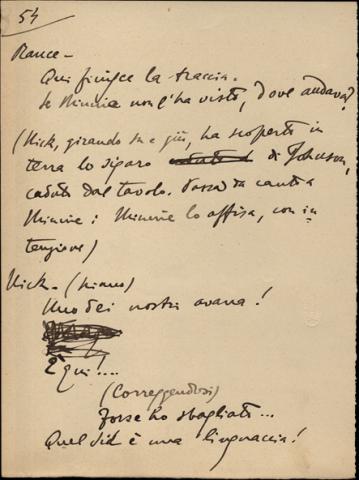 54
Rance -
Qui finisce la traccia.
Se Minnie non l'ha visto, dove andava?
(Nick, girando su e giù, ha scoperto in
terra lo sigaro di Johnson,
caduto dal tavolo. Passa da canto a
Minnie: Minnie lo affisa, con in
tenzione)
Nick - (piano)
Uno dei nostri avana!
È qui!....
(Correggendosi)
Forse ho sbagliato...
Quel Sid è una linguaccia!